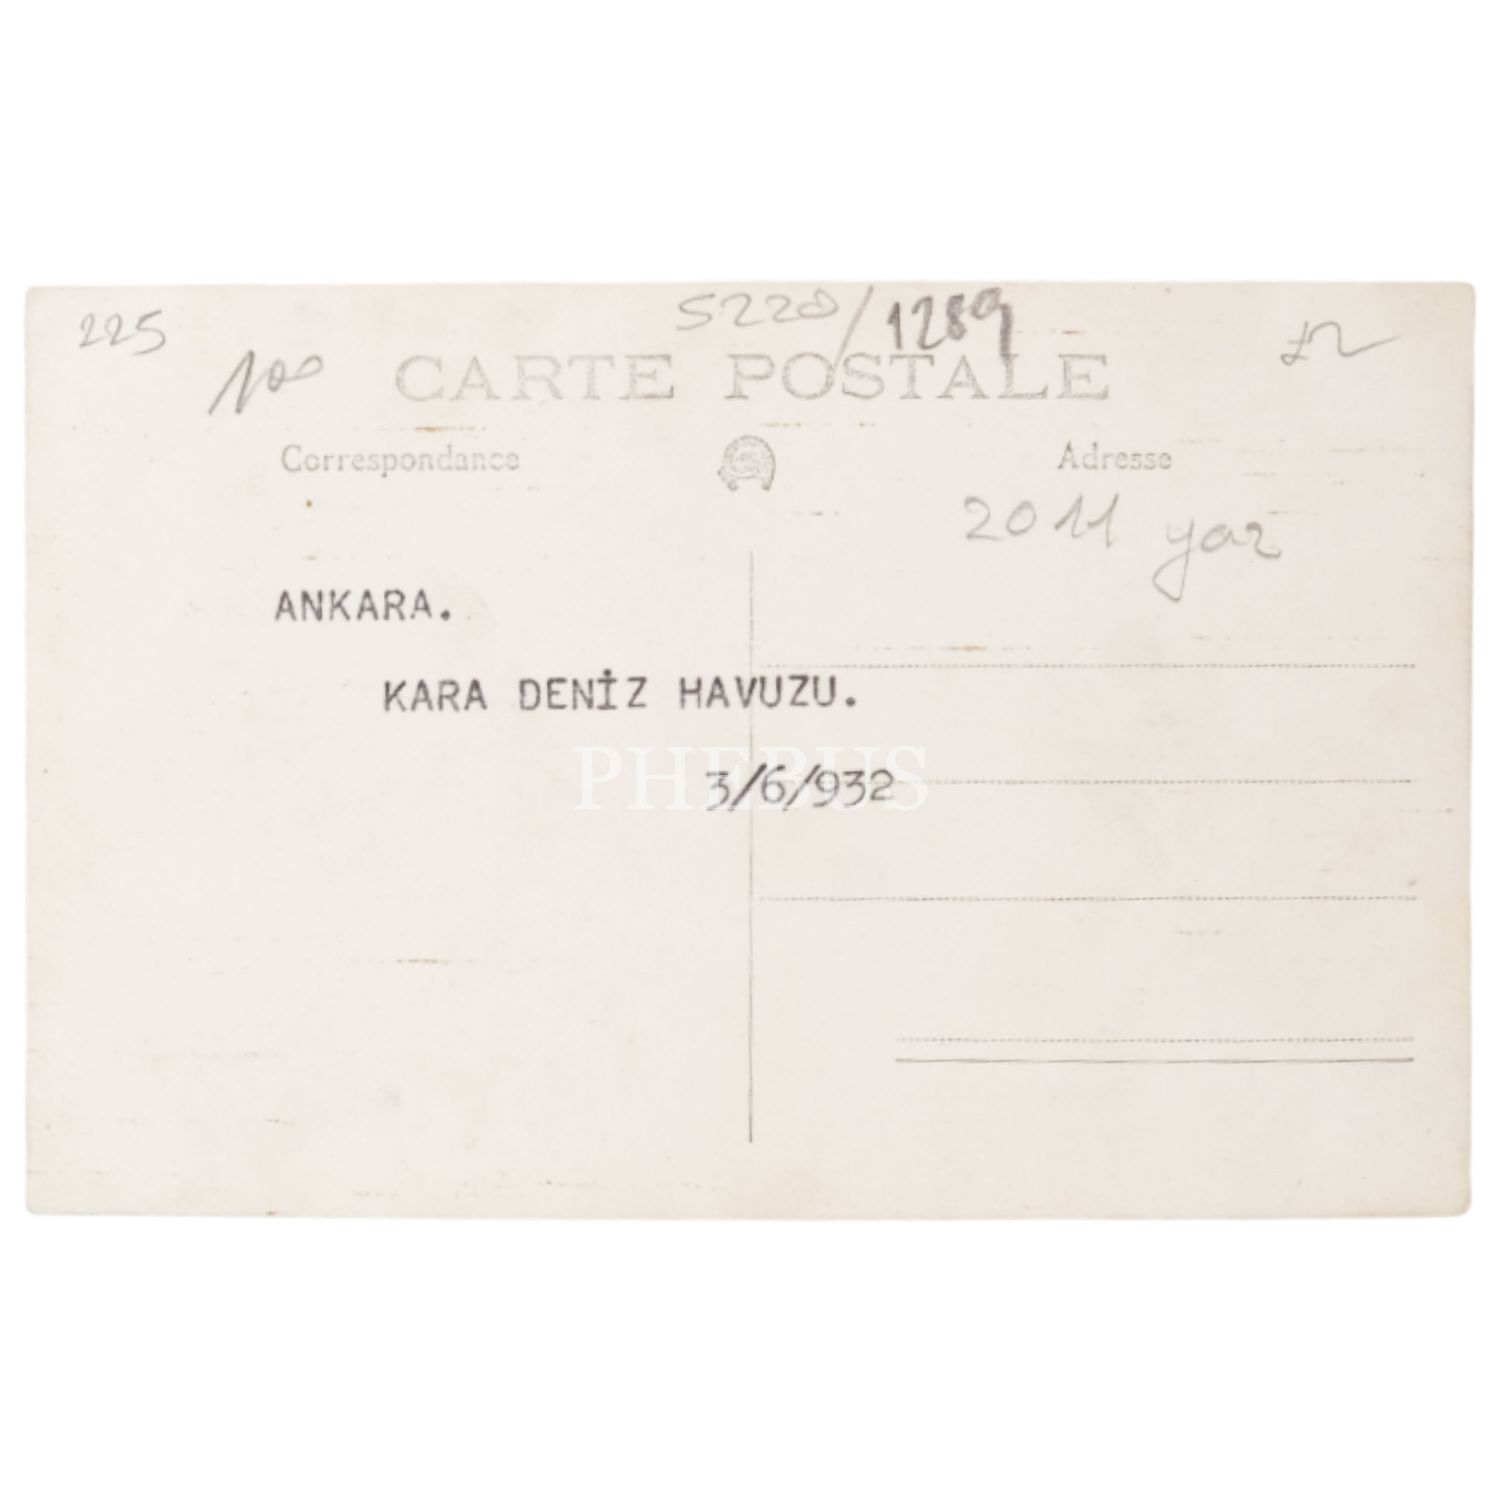 225
100
S220/1289
£2
CARTE POSTALE
Correspondance
Adresse
2011 yaz
ANKARA.
KARA DENİZ HAVUZU.
PHEBUS
3/6/932